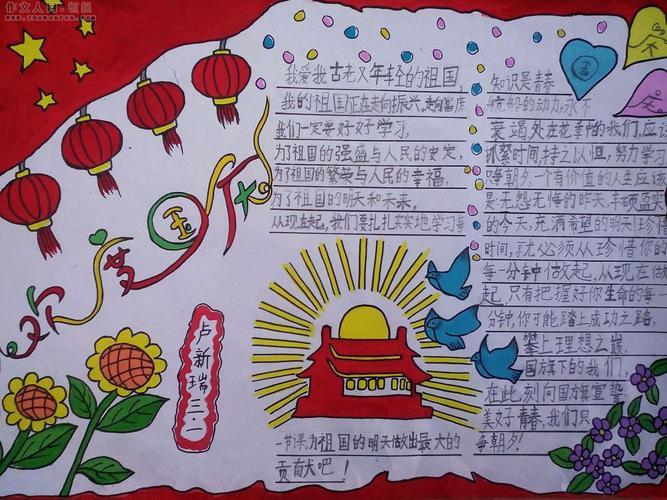 作文人网
欢度国庆
卢新瑞三
我爱我古老又年轻的祖国,
我的祖国正在走向振兴,走向富庶
我们一定要好好学习,
为了祖国的强盛与人民的安定,
为了祖国的繁荣与人民的幸福,
为了祖国的明天和未来,
从现在起,我们要扎扎实实地学习每
一节课,为祖国的明天做出最大的
贡献吧!
知识是青春
航船的动力,永不
衰竭,处在花季的我们,应
抓紧时间,持之以恒,努力学习
争朝夕,一个有价值的人生应该
是:无怨无悔的昨天,丰硕盈实
的今天,充满希望的明天!珍惜
时间,就必须从珍惜你的
每一分钟做起,从现在做
起,只有把握好你生命的每一
分钟,你可能踏上成功之路,
攀上理想之巅
国旗下的我们,
在此刻向国旗宣誓
美好青春,我们只
争朝夕!